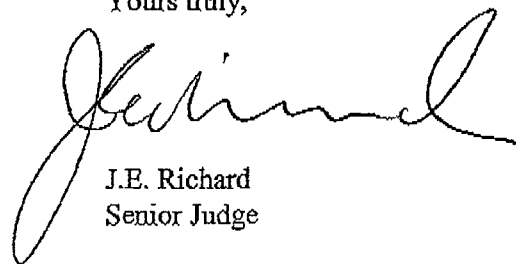 Yours truly,
J.E. Richard
Senior Judge